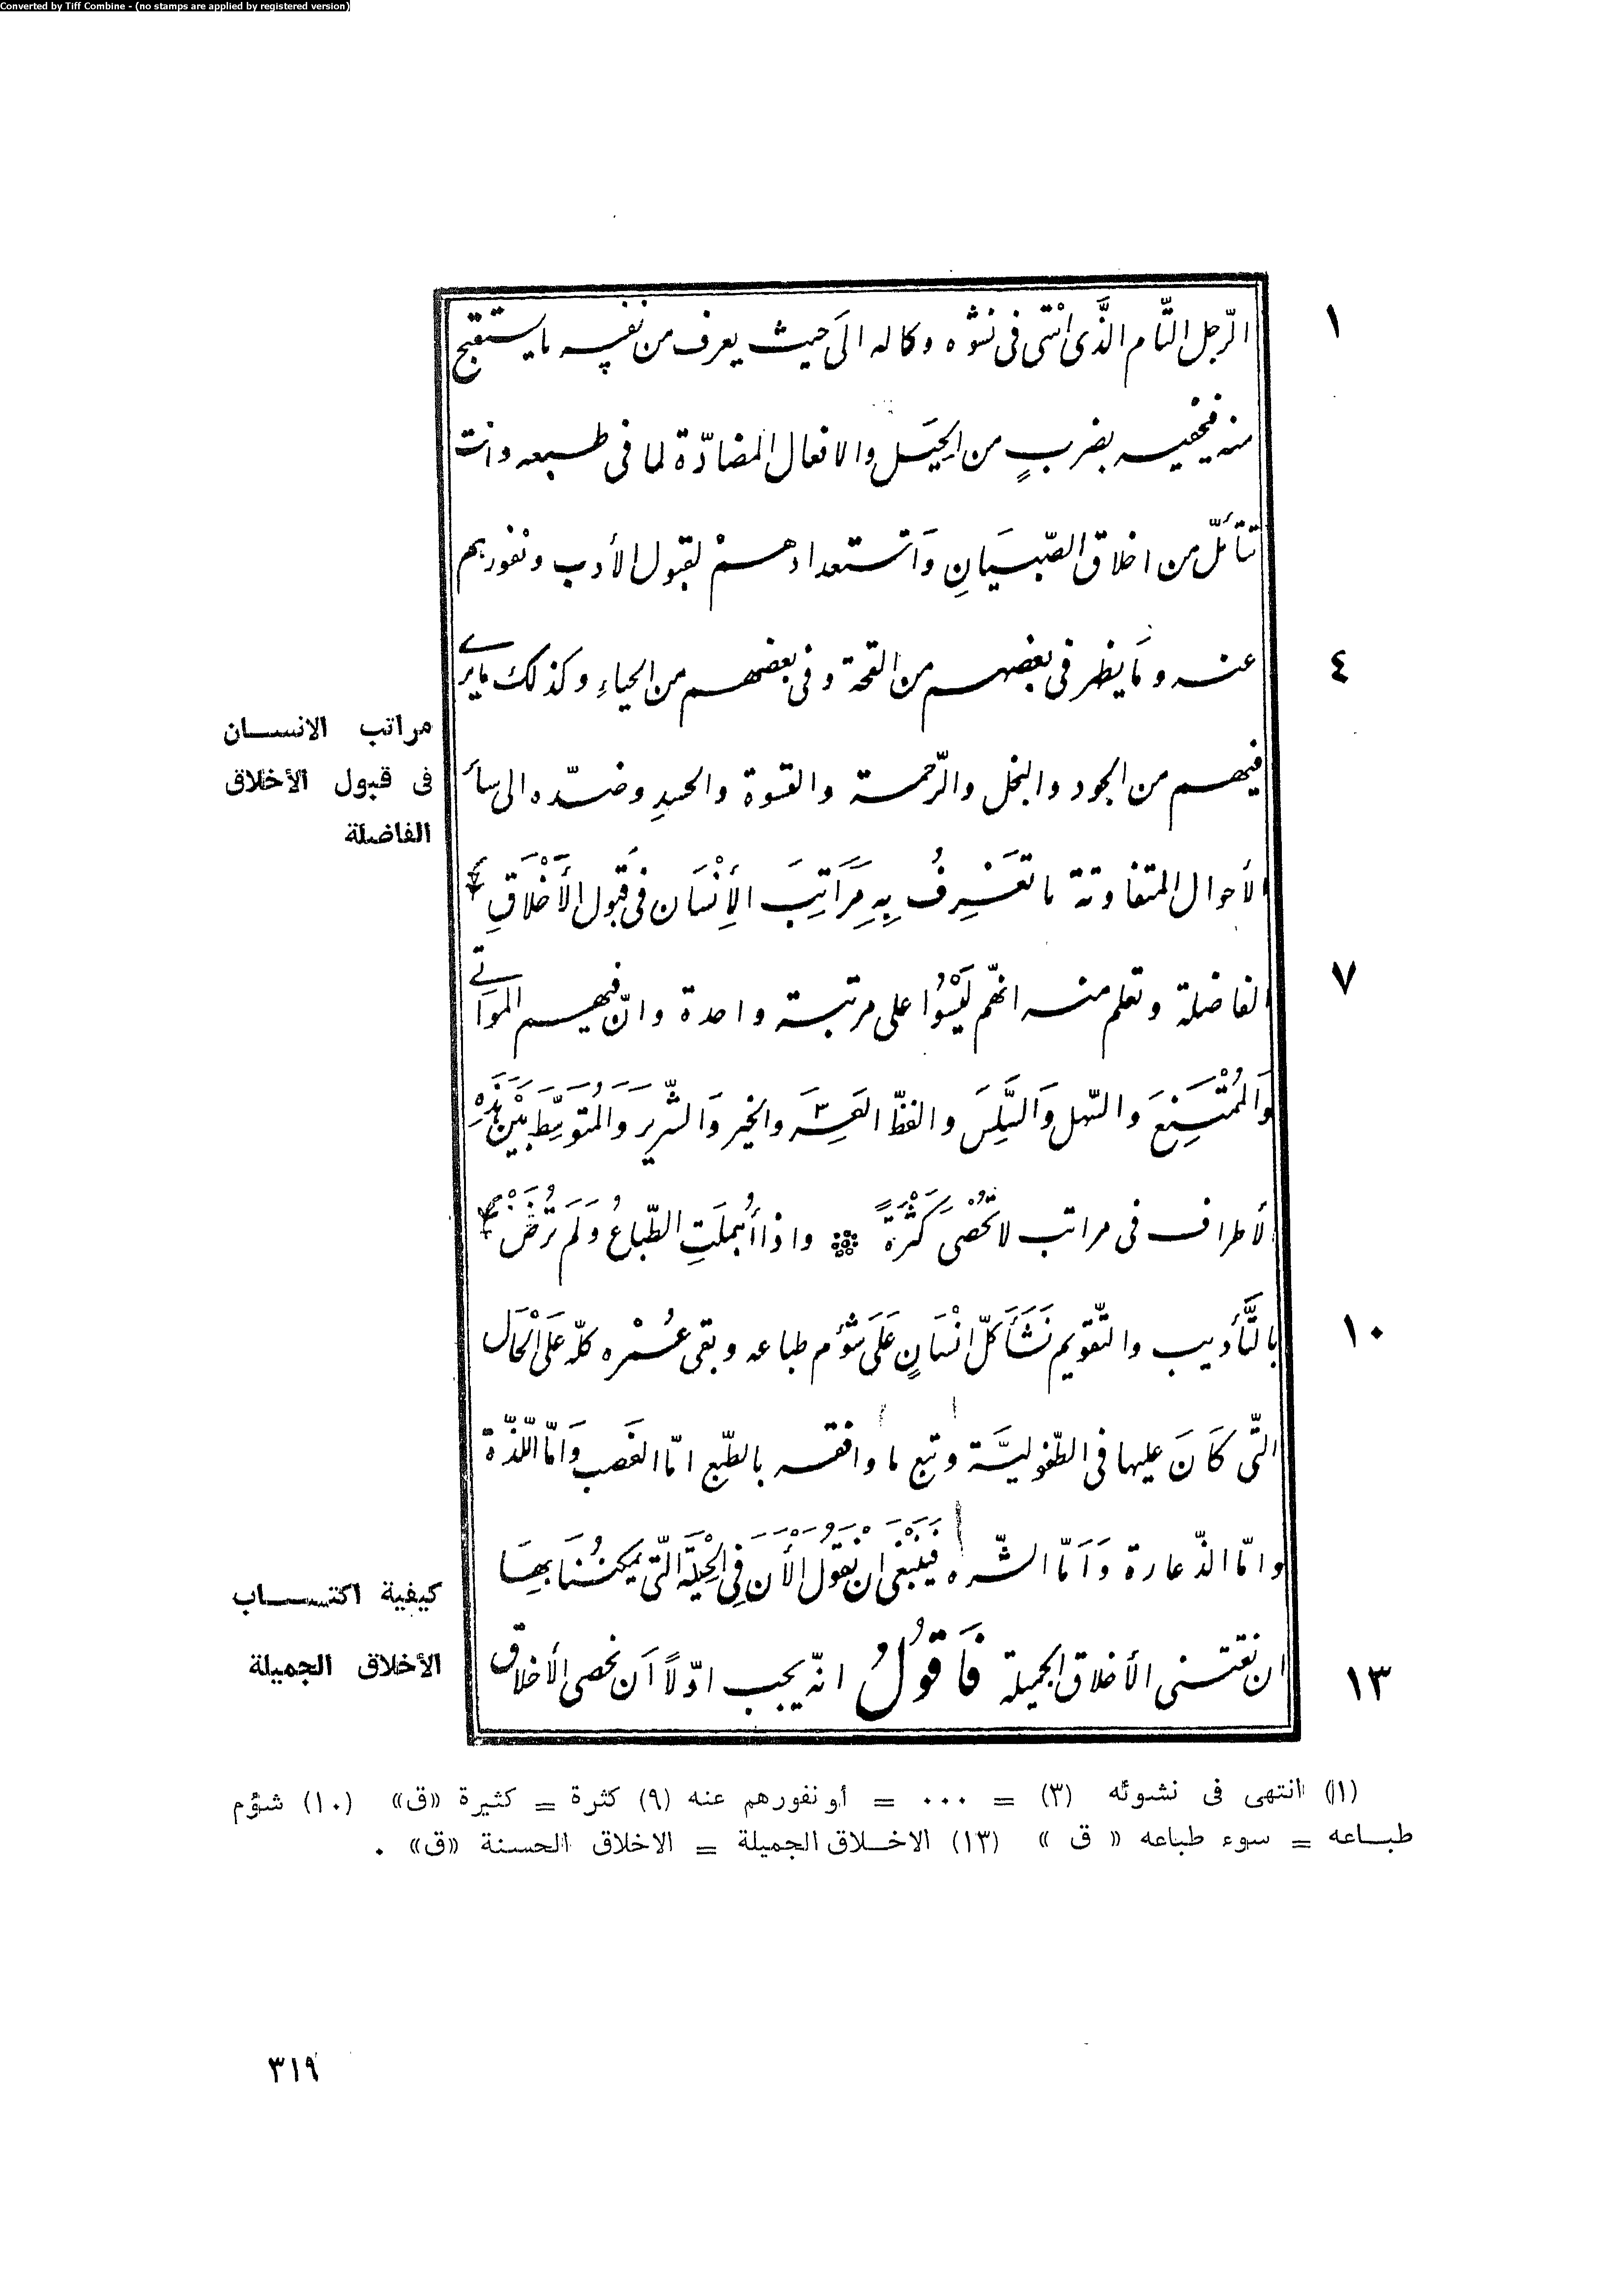 Converted by Tiff Combine - (no stamps are applied by registered version)
١
الرّجل التّام الذّى انْتهى فى نشوُه وكماله الىَ حيث يعرف من نفسه ما يستقبح
منه فيخفيه بضربٍ من الحِيَل والافعال المضادّة لما فى طبعه وانت
تتأمّل من اخلاق الصّبيَانِ وَاستعدادهمْ لقبول الأدب ونفورهم
٤
عنه ومَا يظهر فى بعضهم من القحة وفى بعضهم من الحياءِ وكذلك ما يرى
مراتب الانسان
فى قبول الأخلاق
الفاضلة
فيهم من الجود والبخل والرّحمة والقسوة والحسدِ وضدّه الى سائر
الأحوال المتفاوتة ما تَعْرِفُ بِهِ مَرَاتِبَ الأِنْسَان فى قَبُول الأَخْلَاقِ
٧
الفاضلة وتعلم منه انّهم لَيْسُوا على مرتبة واحدة وانّ فيهم المواتى
وَالمُمْتَنِعَ والسّهل وَالسَّلِسَ والفظّ العَسِرَ والخيّر وَالشّرّيرَ وَالمُتوَسِّطَ بَيْن هَذِهِ
الأطراف فى مراتب لا تُحْصىَ كَثْرَةً واذا أُهمِلَتِ الطّباعُ وَلَم تُرَضْ
١٠
بالتَّأديب والتّقويم نَشَأَ كلّ انْسَانٍ عَلَى شؤم طباعه وبقى عُمْره كلّه عَلَى الْحَال
التّى كَانَ عليها فى الطّفوليَّة وتبع ما وافقه بالطّبع امّا الغَضب وَامّا اللّذّة
وامّا الذّعارة وَاَمّا الشّره فَيَنْبَغى ان نَقُولَ الْأَن فِى الْحِيْلَة التّى يمكنُنَا بِهَا
كيفية اكتساب
الأخلاق الجميلة
١٣
ان نقتنى الأخلاق الجميلة فَاَقُولُ انّه يجب اوّلاً اَن نحصى الأخلاق
(١) انتهى فى نشوئه (٣) = ٠٠٠ = أو نفورهم عنه (٩) كثرة = كثيرة «ق» (١٠) شؤم
طباعه = سوء طباعه « ق » (١٣) الاخلاق الجميلة = الاخلاق الحسنة «ق» .
٣١٩